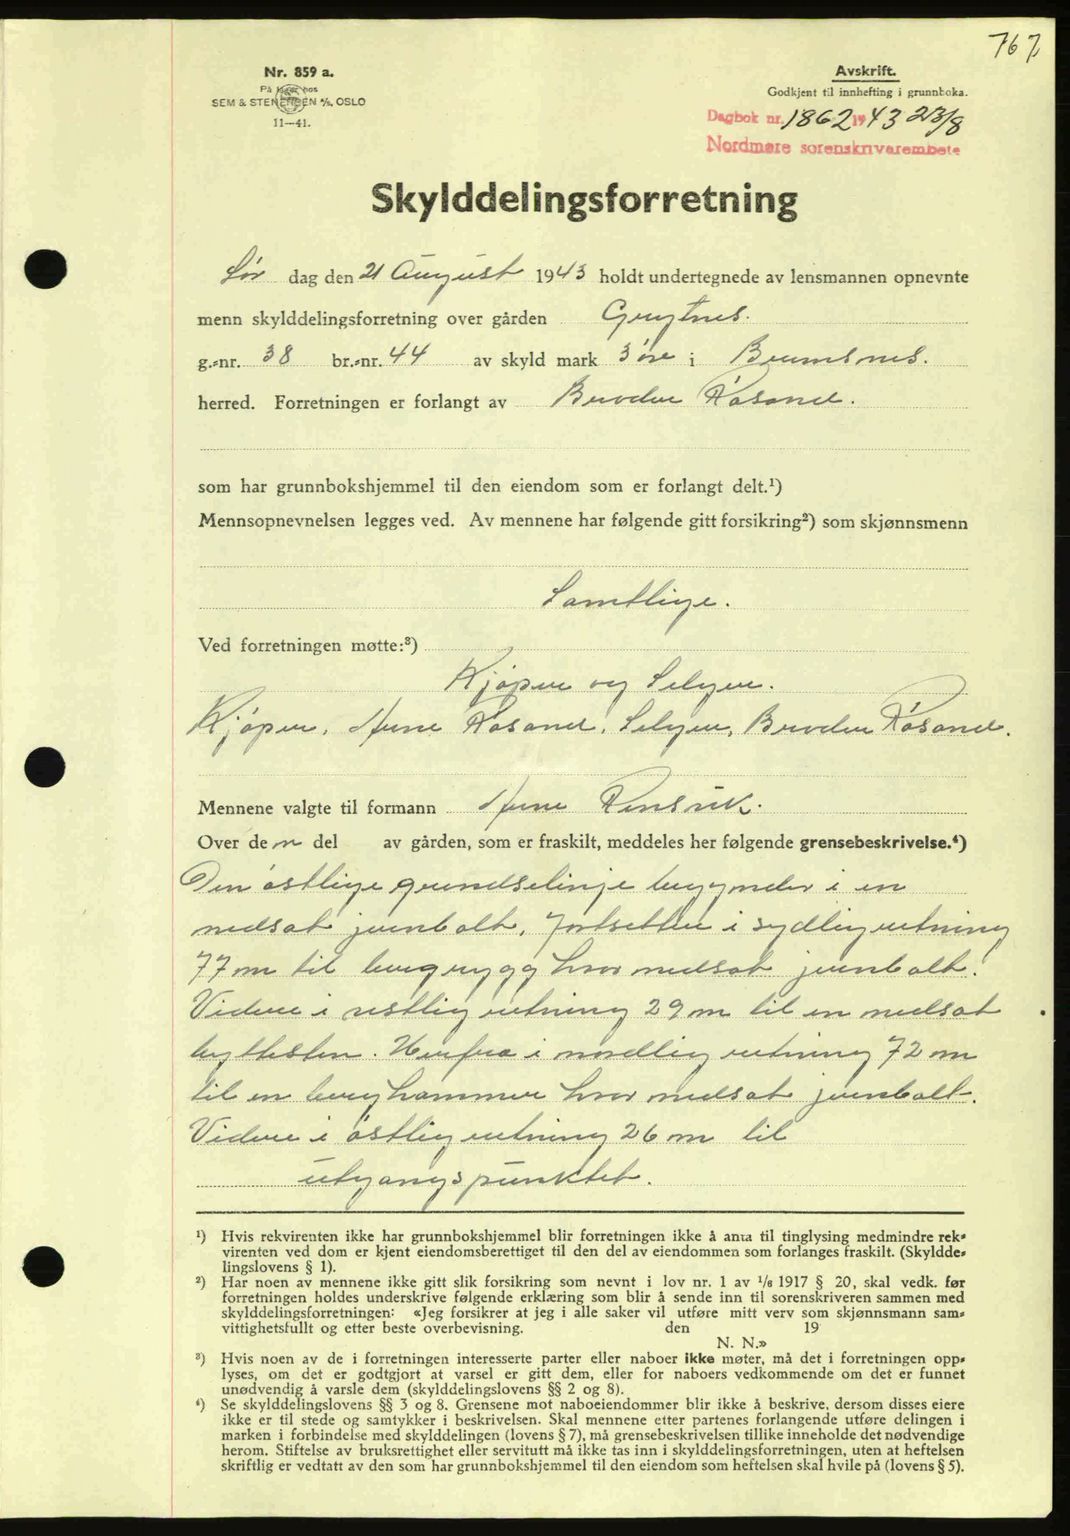 767.
Nr. 859 a.
På lager hos
SEM & STENERSEN A/S, OSLO
11—41.
Avskrift.
Godkjent til innhefting i grunnboka.
Dagbok nr. 1862 1943 23/8
Nordmøre sorenskrivarembete
Skylddelingsforretning
Lør dag den 21 August 1943 holdt undertegnede av lensmannen opnevnte
menn skylddelingsforretning over gården Grytnes.
g.-nr. 38 br.-nr. 44 av skyld mark 3 øre i Bremsnes.
herred. Forretningen er forlangt av Broder Røsand.
som har grunnbokshjemmel til den eiendom som er forlangt delt.¹)
Mennsopnevnelsen legges ved. Av mennene har følgende gitt forsikring²) som skjønnsmenn
Samtlige.
Ved forretningen møtte:³)
Kjøper og Selger.
Kjøper, Arne Røsand. Selger, Broder Røsand.
Mennene valgte til formann Arne Rensvik.
Over den del av gården, som er fraskilt, meddeles her følgende grensebeskrivelse.⁴)
Den østlige grendselinje begynder i en
nedsat jernbolt, fortsetter i sydlig retning
77 m til bergrygg hvor nedsat jernbolt.
Videre i vestlig retning 29 m til en nedsat
byttesten. Herfra i nordlig retning 72 m
til en berghammer hvor nedsat jernbolt.
Videre i østlig retning 26 m til
utgangspunktet.
¹) Hvis rekvirenten ikke har grunnbokshjemmel blir forretningen ikke å anta til tinglysing medmindre rek-
virenten ved dom er kjent eiendomsberettiget til den del av eiendommen som forlanges fraskilt. (Skyldde-
lingslovens § 1).
²) Har noen av mennene ikke gitt slik forsikring som nevnt i lov nr. 1 av 1/6 1917 § 20, skal vedk. før
forretningen holdes underskrive følgende erklæring som blir å sende inn til sorenskriveren sammen med
skylddelingsforretningen: «Jeg forsikrer at jeg i alle saker vil utføre mitt verv som skjønnsmann sam-
vittighetsfullt og etter beste overbevisning. den 19
N. N.»
³) Hvis noen av de i forretningen interesserte parter eller naboer ikke møter, må det i forretningen opp-
lyses, om det er godtgjort at varsel er gitt dem, eller for naboers vedkommende om det er funnet
unødvendig å varsle dem (skylddelingslovens §§ 2 og 8).
⁴) Se skylddelingslovens §§ 3 og 8. Grensene mot naboeiendommer blir ikke å beskrive, dersom disses eiere
ikke er til stede og samtykker i beskrivelsen. Skal mennene etter partenes forlangende utføre delingen i
marken i forbindelse med skylddelingen (lovens § 7), må grensebeskrivelsen tillike inneholde det nødvendige
herom. Stiftelse av bruksrettighet eller servitutt må ikke tas inn i skylddelingsforretningen, uten at heftelsen
skriftlig er vedtatt av den som har grunnbokshjemmel til den eiendom som heftelsen skal hvile på (lovens § 5).